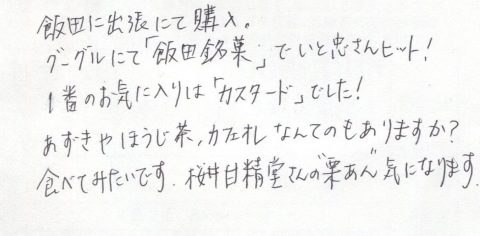 飯田に出張にて購入。
グーグルにて「飯田銘菓」でいと忠さんヒット!
1番のお気に入りは「カスタード」でした!
あずきやほうじ茶,カフェオレなんてのもありますか?
食べてみたいです.桜井甘精堂さんの"栗あん"気になります